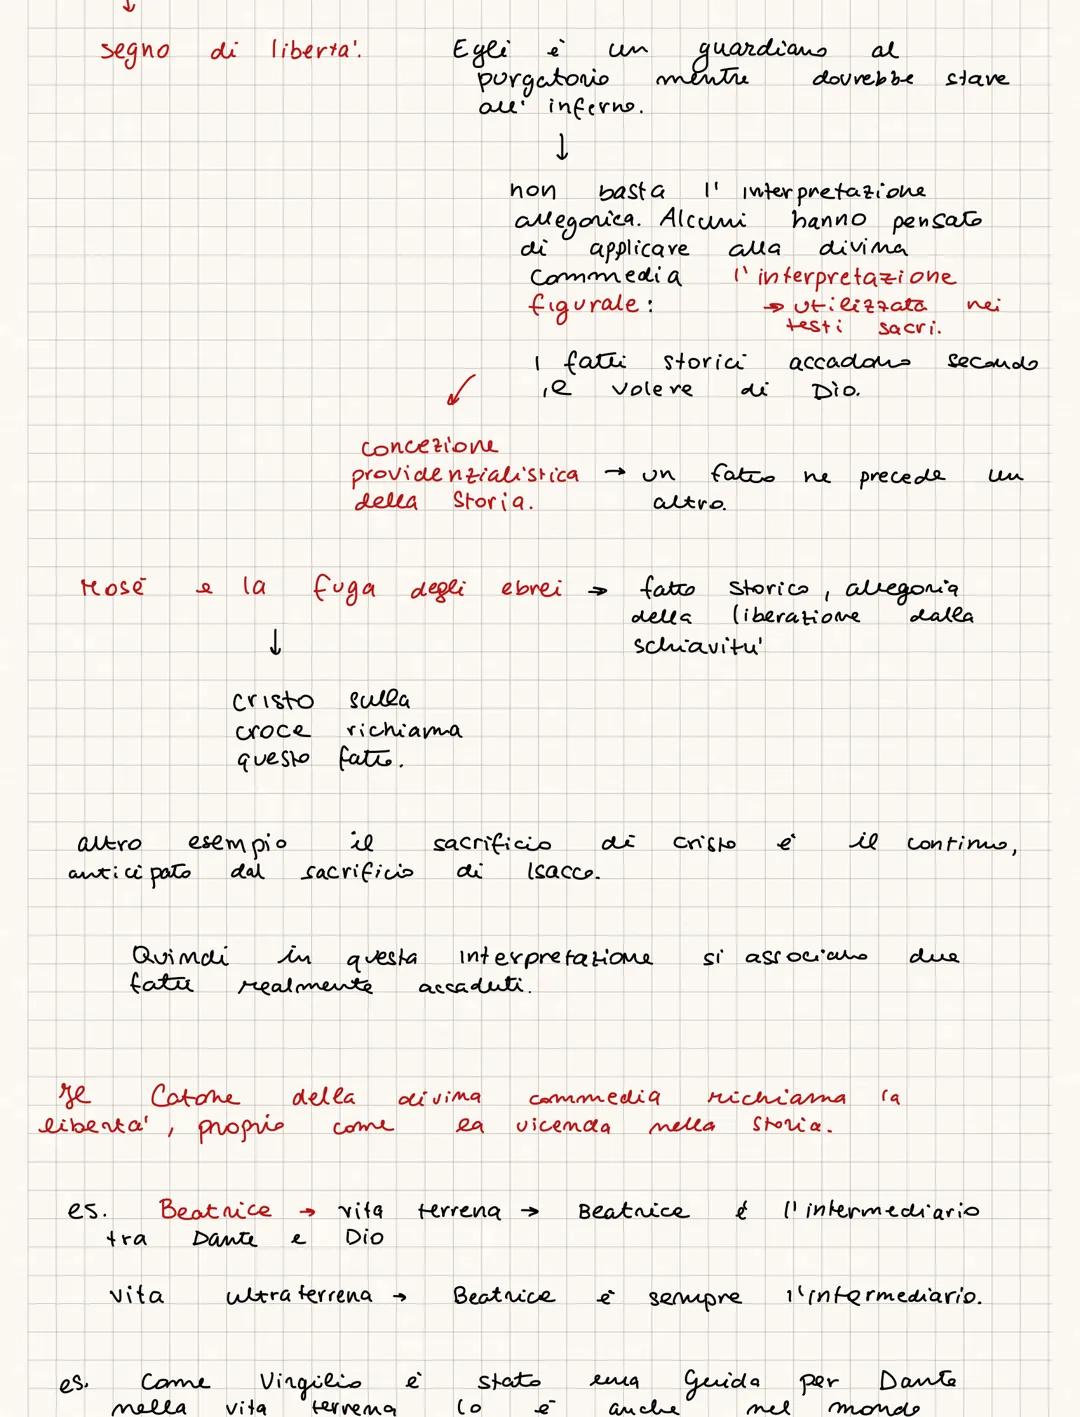 segno di liberta'. Egli è un guardiano al
purgatorio mentre dovrebbe stare
all' inferno.
non basta l' interpretazione
allegorica. Alcuni hanno pensato
di applicare alla divina
Commedia l'interpretazione
figurale: → utilizzata nei
testi sacri.
I fatti storici accadono secondo
il volere di Dio.
concezione
providenzialistica → un fatto ne precede un
della Storia. altro.
Mosé e la fuga degli ebrei → fatto storico, allegoria
della liberazione dalla
schiavitu'
cristo sulla
croce richiama
questo fatto.
altro esempio il sacrificio di cristo è il continuo,
anticipato dal sacrificio di Isacco.
Quindi in questa interpretazione si associano due
fatti realmente accaduti.
Il Catone della divina commedia richiama la
liberta', proprio come la vicenda nella storia.
es. Beatrice → vita terrena → Beatrice é l'intermediario
tra Dante e Dio
vita ultraterrena → Beatrice è sempre l'intermediario.
es. Come Virgilio è stato una Guida per Dante
nella vita terrena lo è anche nel mondo